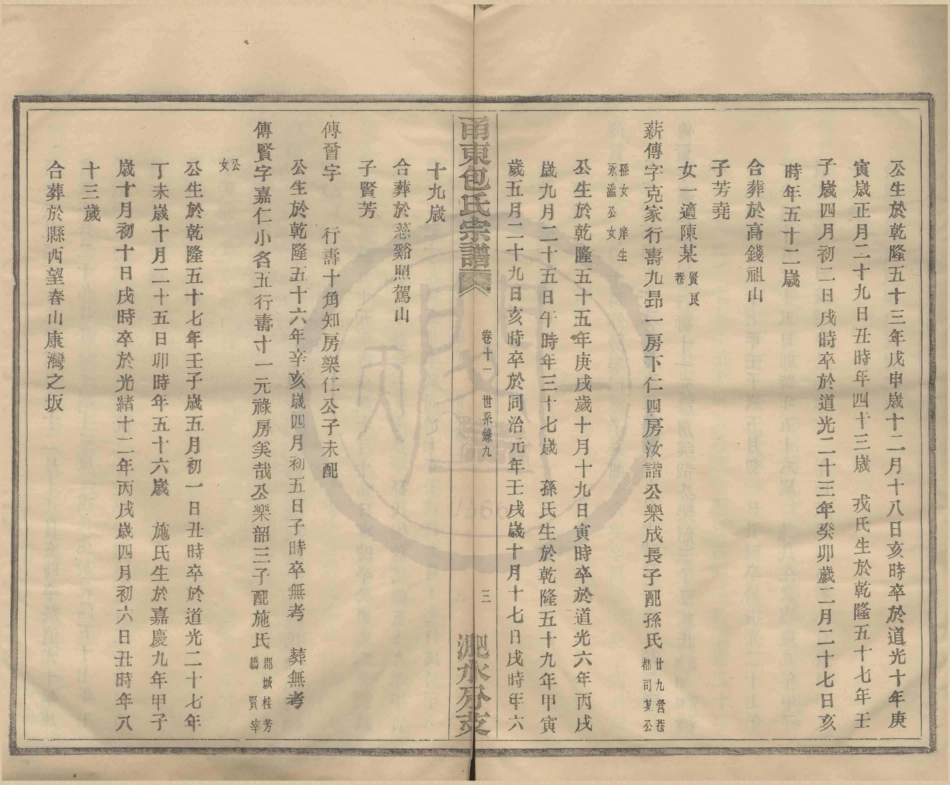 公生於乾隆五十三年戊申歲十二月十八日亥時卒於道光十年庚
寅歲正月二十九日丑時年四十三歲 戎氏生於乾隆五十七年壬
子歲四月初二日戌時卒於道光二十三年癸卯歲二月二十七日亥
時年五十二歲
合葬於高錢祖山
子芳堯
女一適陳某
薪傳字克家行壽九昂一房下仁四房汝諧公樂成長子配孫氏
公生於乾隆五十五年庚戌歲十月十九日寅時卒於道光六年丙戌
歲九月二十五日午時年三十七歲 孫氏生於乾隆五十九年甲寅
歲五月二十九日亥時卒於同治元年壬戌歲十月十七日戌時年六
甬東包氏宗譜
卷十一 世系錄九
三
淝水分支
十九歲
合葬於慈谿照駕山
子賢芳
傳晉字 行壽十角知房樂仁公子未配
公生於乾隆五十六年辛亥歲四月初五日子時卒無考 葬無考
傳賢字嘉仁小名五行壽十一元祿房美哉公樂韶三子配施氏 郡城桂芳
公女
公生於乾隆五十七年壬子歲五月初一日丑時卒於道光二十七年
丁未歲十月二十五日卯時年五十六歲 施氏生於嘉慶九年甲子
歲十月初十日戌時卒於光緒十二年丙戌歲四月初六日丑時年八
十三歲
合葬於縣西望春山康灣之坂